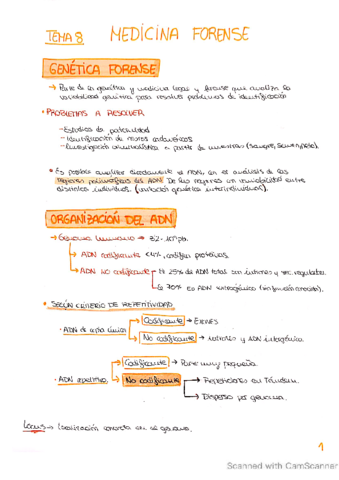 TEMA 8 MEDICINA FORENSE
GENÉTICA FORENSE
→ Parte de la genética y medicina legal y forense que analiza la
variabilidad genética para resolver problemas de identificación
• PROBLEMAS A RESOLVER
- Estudios de paternidad
- Identificación de restos cadavéricos
- Investigación criminalística a partir de muestras (sangre, semen, pelo).
• Es posible analizar directamente el ADN, en el análisis de las
regiones polimórficas del ADN. Son regiones con variabilidad entre
distintos individuos. (variación genética interindividual).
ORGANIZACIÓN DEL ADN
→ Genoma humano → 3,2 · 10⁹ pb.
→ ADN codificante <4%, codifica proteínas.
→ ADN NO codificante → El 25% del ADN total son intrones y sec. reguladoras.
→ 70% es ADN extragénico (sin función concreta).
• SEGÚN CRITERIO DE REPETITIVIDAD
• ADN de copia única
Codificante → EXONES
No codificante → intrones y ADN intergénico.
• ADN repetitivo
Codificante → Parte muy pequeña
No codificante → Repeticiones en Tándem.
→ Disperso por genoma.
Locus → localización concreta en el genoma.
1
Scanned with CamScanner